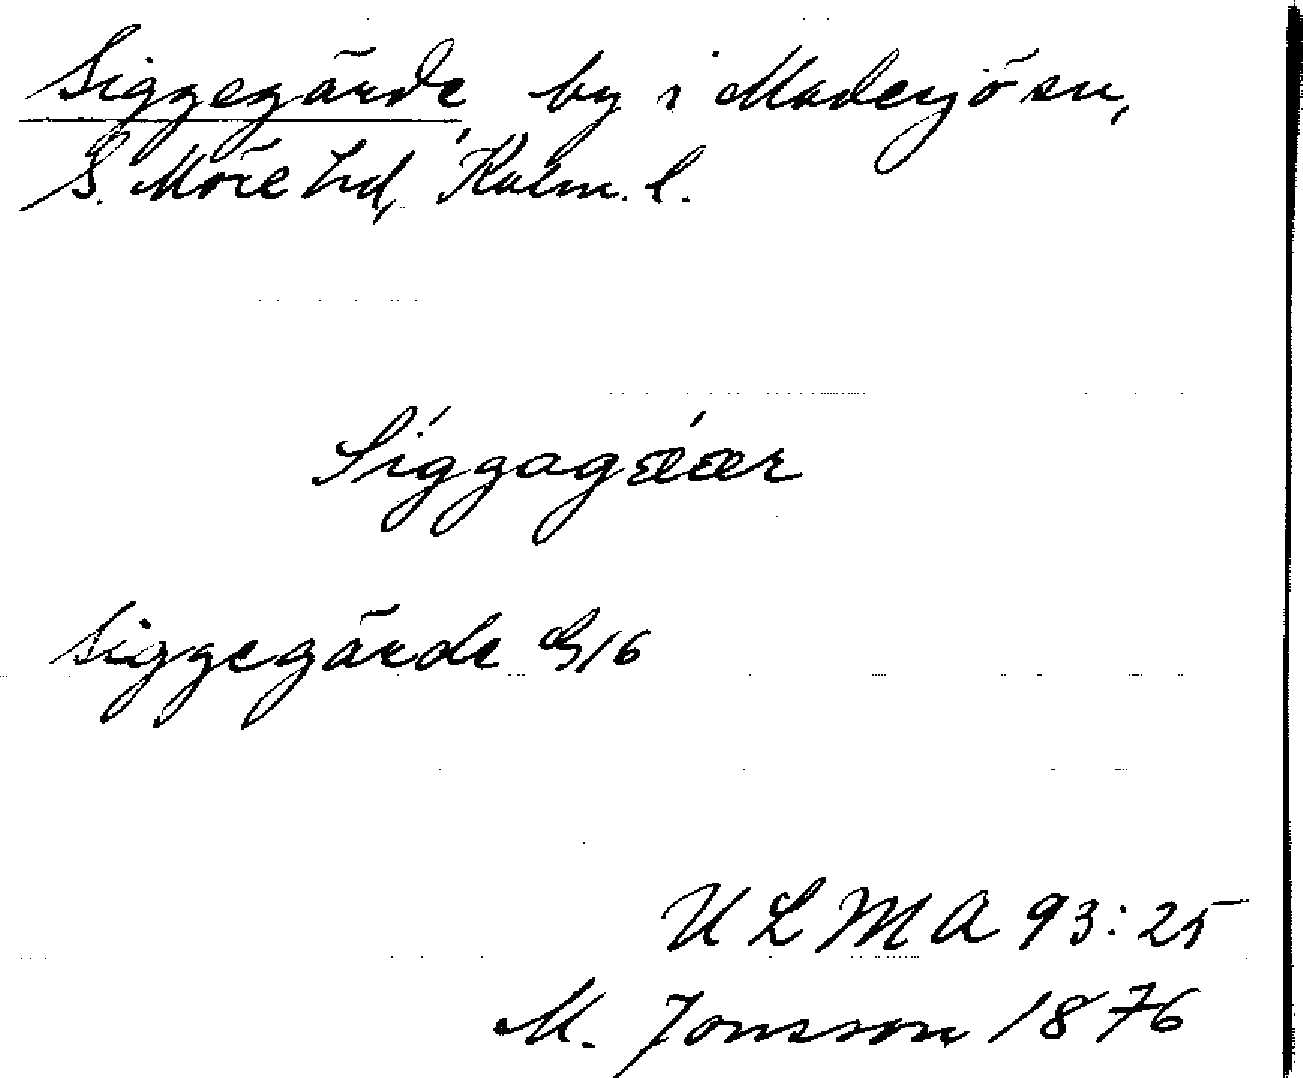 Siggegärde, by i Madesjö sn,
S. Möre hd, Kalm. l.
Síggagǽær
Siggegärde G16
ULMA 93:25
M. Jonsson 1876